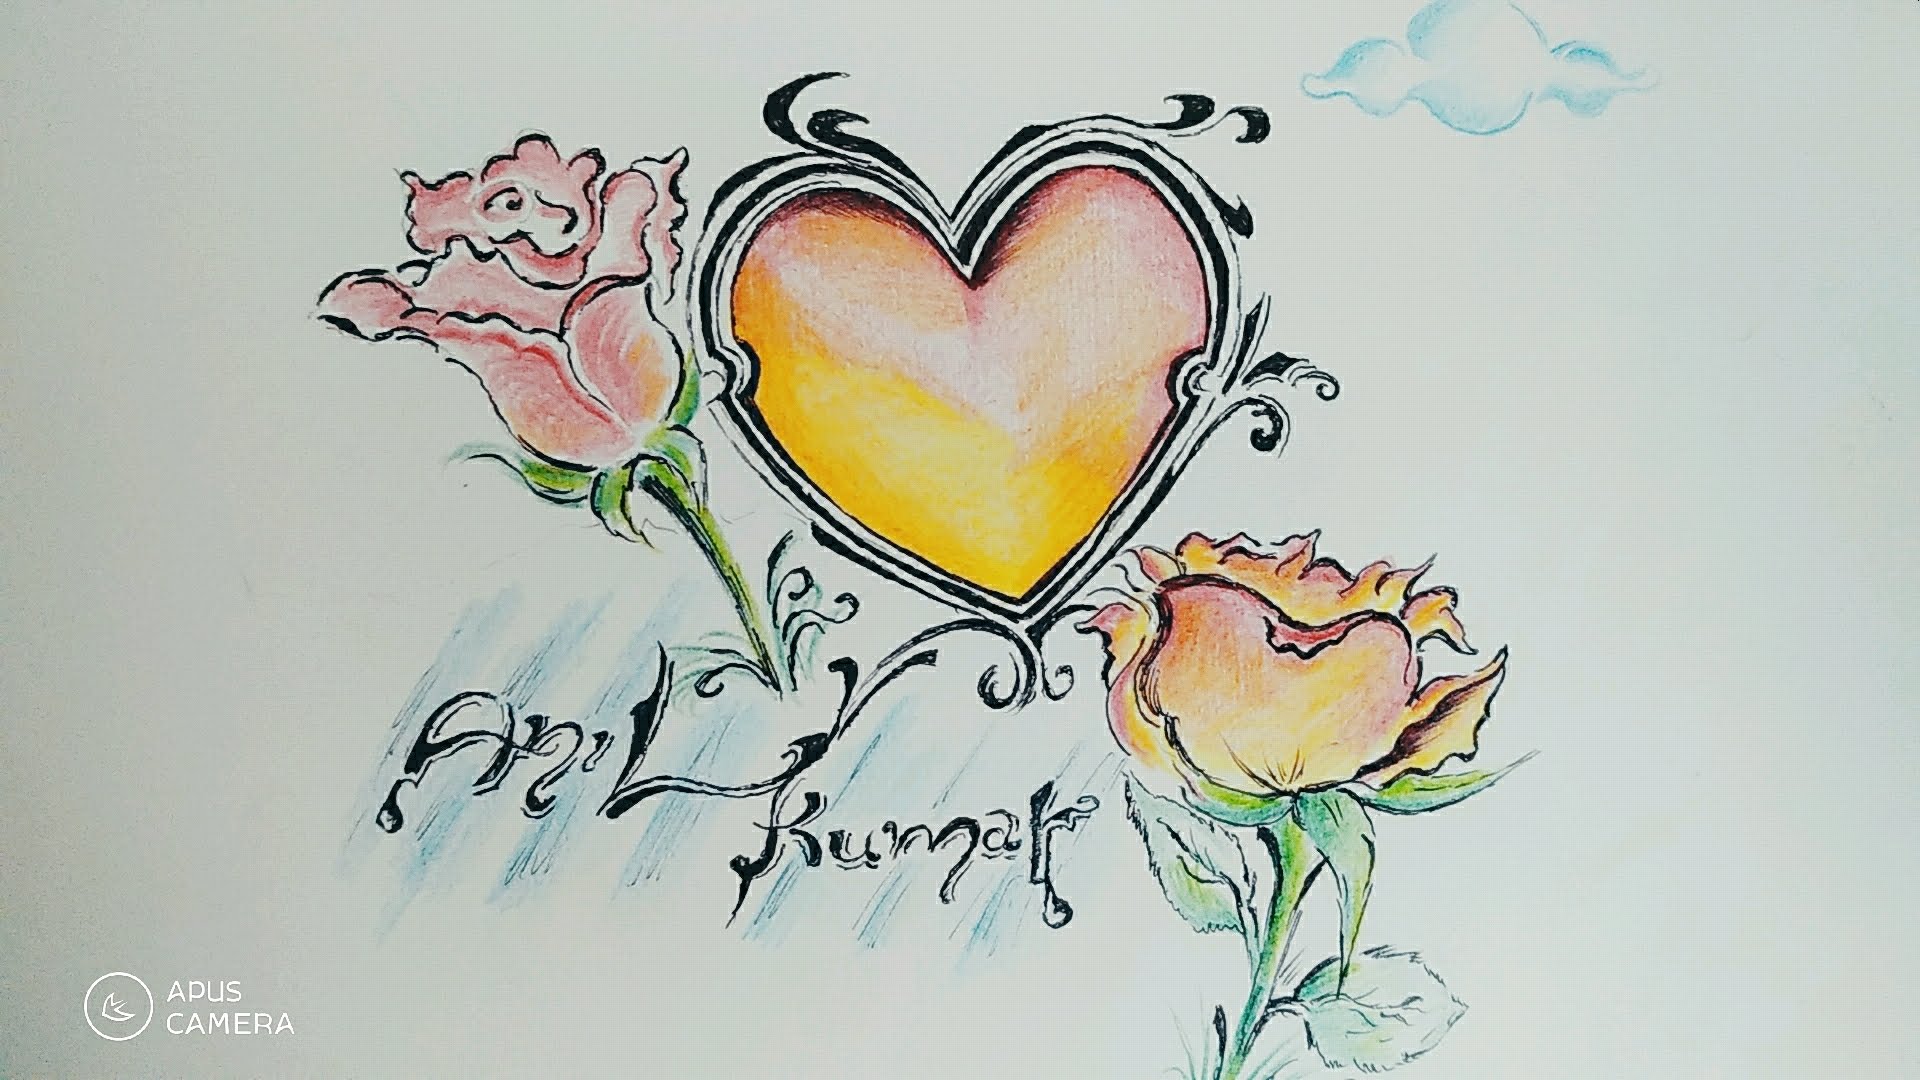 Anil
Kumar
APUS
CAMERA